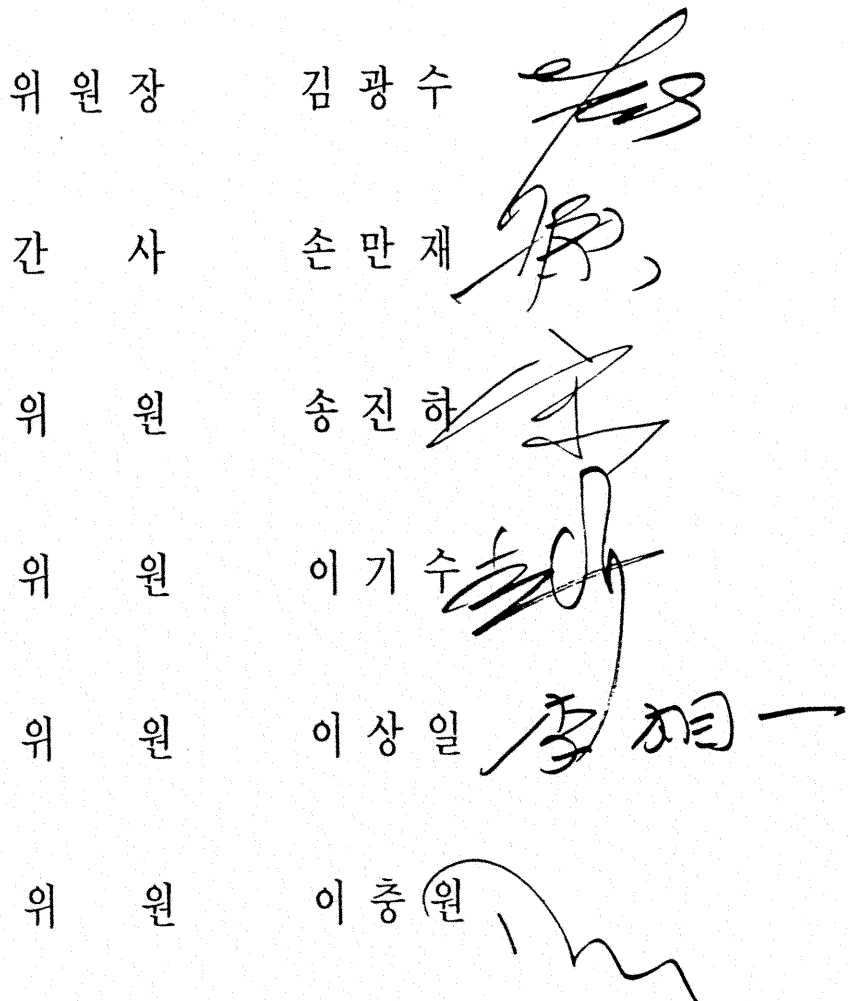 위원장 김광수
간 사 손만재
위 원 송진하
위 원 이기수
위 원 이상일 李相一
위 원 이충원